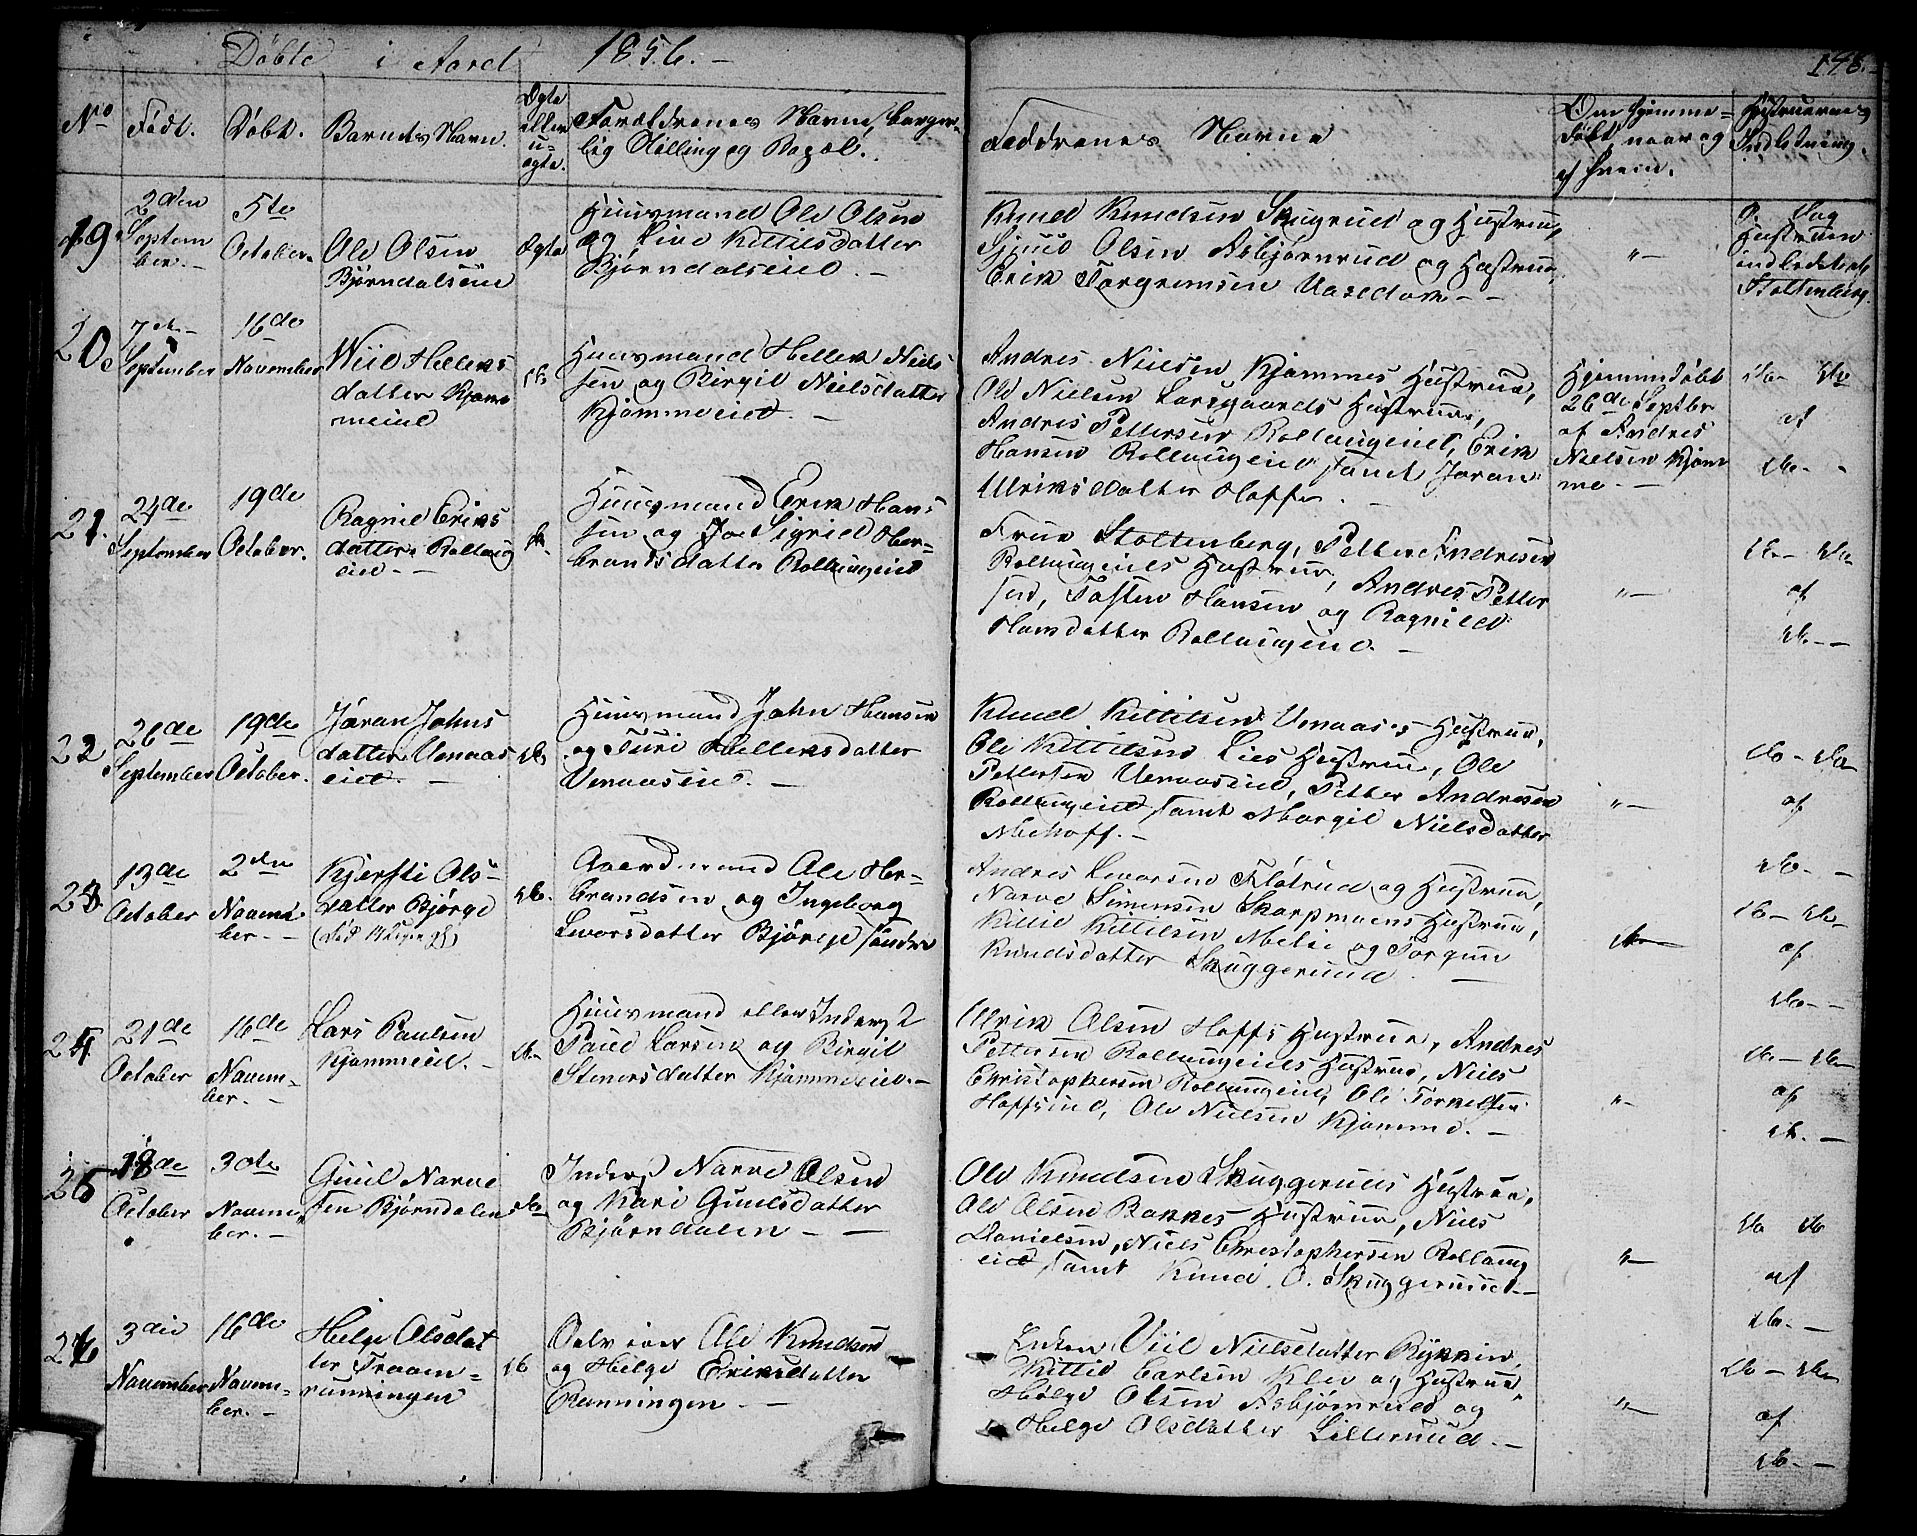 Døbte i Aaret 1856.-
No
Født.
Døbt.
Barnets Navn.
Ægte
eller
u-
ægte.
Forældrenes Navne, borger-
lig Stilling og Bopæl.
Faddrenes Navne
Om hjemme-
døbt, naar og
af hvem.
Hustruernes
Indledning.
19.
2den
Septem
ber.-
5te
October.
Ole Olsen
Bjørndalseiet
Ægte
Huusmand Ole Olsen
og Live Kittilsdatter
Bjørndalseiet. -
Knud Knudsen Skugrud og Hustrue,
Olsen Asbjørnrud og Hustrue,
Erik Torgremsen - -
"-
Dag
Hustruen
indledet af
Stoltenberg
20.
7de-
September
16de
November
Hellens
datter Kjøm
meiet
do
Huusmand Hellek Niels
sen og Birgit Nielsdatter
Kjømmeiet. -
Andres Nielsen Kjømmes Hustrue,
Ole Nielsen Hustrue,
Andres Pettersen Rollaugeiet, Erik
Hansen Rollaugeiet samt Jøran
Ulriksdatter Hoffs. -
Hjemmedøbt
26de Septbr
af Andres
Nielsen Kjøm
me. -
do- do
af
do. -
21.
24de
September
19de
October.
Ragnil Eriks
datter Rollaug
eiet - -
do.
Huusmand Erik Hans
sen og Sigrid Her-
brandsdatter Rollaugeiet
Frue Stoltenberg, Petter Andresen
Rollaugeiets Hustrue, Andres Petter
sen, Tosten Hansen og Ragnild
Hansdatter Rollaugeiet. -
"-
do- do-
af
do.--
22
26de
September
19de
October.
Jøran Johns
datter Uvaas
eiet. -
do
Huusmand John Hansen
og Turi Helleksdatter
Uvaaseiet. -
Knud Kittilsen Uvaas's Hustrue,
Ole Kittilsens Lies Hustrue, Ole
Pettersen Uvaaseiet, Petter Andresen
Rollaugeiet samt Margit Nielsdatter
-
"-
do- do-
af
do. -
23
13de
October
2den
Novem-
ber.--
Kjersti Ols-
datter Bjørge
do.
Gaardmand Ole Her-
brandsen og Ingeborg
Levorsdatter Bjørge søndre
Andres Levorsen Fløtrud og Hustrue,
Narve Simensen Skarpmoens Hustrue,
Kittil Kittilsen Melie og Torgun
Knudsdatter Skuggerud -
do- do-
af
do.--
24
21de
October
16de
Novem-
ber. -
Lars Paulsen
Kjømmeiet. -
do-
Huusmand eller Inderst
Paul Larsen og Birgit
Stenersdatter Kjømmeiet.-
Ulrik Olsen Hoffs Hustrue, Andres
Pettersen Rollaugeiets Hustrue, Niels
Christophersen Rollaugeiet, Ole Torkelsen
Hoffseiet, Ole Nielsen Kjømme. -
"-
do- do-
af
do. -
25
18de
October
30te
Novem
ber.-
Guul Narve
sen Bjørndalen
do-
Inderst Narve Olsen
og Kari Guulsdatter
Bjørndalen - -
Ole Knudsen Skuggeruds Hustrue,
Ole Olsen Bakkes Hustrue, Niels
Danielsen, Niels Christophersen Rollaug
eiet samt Knud O. Skuggerudet.-
"-
do do
af
do.-
26
3die
November
16de
Novem-
ber.-
Helge Olsdat
ter Traam-
runningen
do
Ole Knudsen
og Helge Eriksdatter
Runningen - -
Enken Nielsdatter
Kittil Carlsen Klev og Hustrue,
Helge Olsen Asbjørnrud og
Helge Olsdatter Lillerud.-
"-
do- do-
af
do.-